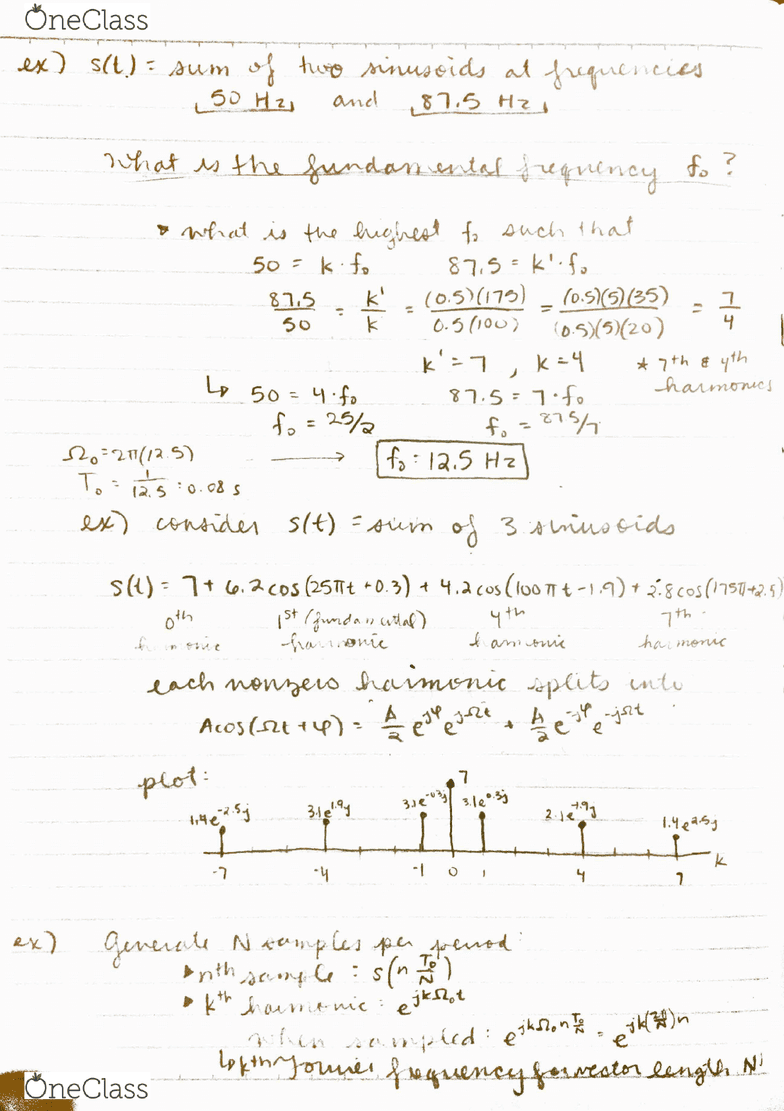 OneClass
ex) s(t) = sum of two sinusoids at frequencies
50 Hz and 87.5 Hz
What is the fundamental frequency f₀?
• What is the highest f₀ such that
50 = k · f₀ 87.5 = k' · f₀
87.5/50 = k'/k = (0.5)(175)/0.5(100) = (0.5)(5)(35)/(0.5)(5)(20) = 7/4
k' = 7 , k = 4 * 7th & 4th harmonics
↳ 50 = 4 · f₀ 87.5 = 7 · f₀
f₀ = 25/2 f₀ = 87.5/7
Ω₀ = 2π(12.5) → f₀ = 12.5 Hz
T₀ = 1/12.5 = 0.08 s
ex) consider s(t) = sum of 3 sinusoids
s(t) = 7 + 6.2cos(25πt + 0.3) + 4.2cos(100πt - 1.9) + 2.8cos(175π+2.5)
0th 1st (fundamental) 4th 7th
harmonic harmonic harmonic harmonic
each nonzero harmonic splits into
Acos(Ωt + φ) = A/2 e^jφ e^jΩt + A/2 e^-jφ e^-jΩt
plot:
7
1.4e^-2.5j 3.1e^1.9j 3.1e^-0.3j 3.1e^0.3j 2.1e^-1.9j 1.4e^2.5j
-7 -4 -1 0 1 4 7 k
ex) Generate N samples per period:
▸ nth sample : s(n T₀/N)
• kth harmonic : e^jkΩ₀t
when sampled : e^jkΩ₀n T₀/N = e^jk(2π/N)n
↳ kth Fourier frequency for vector length N
OneClass